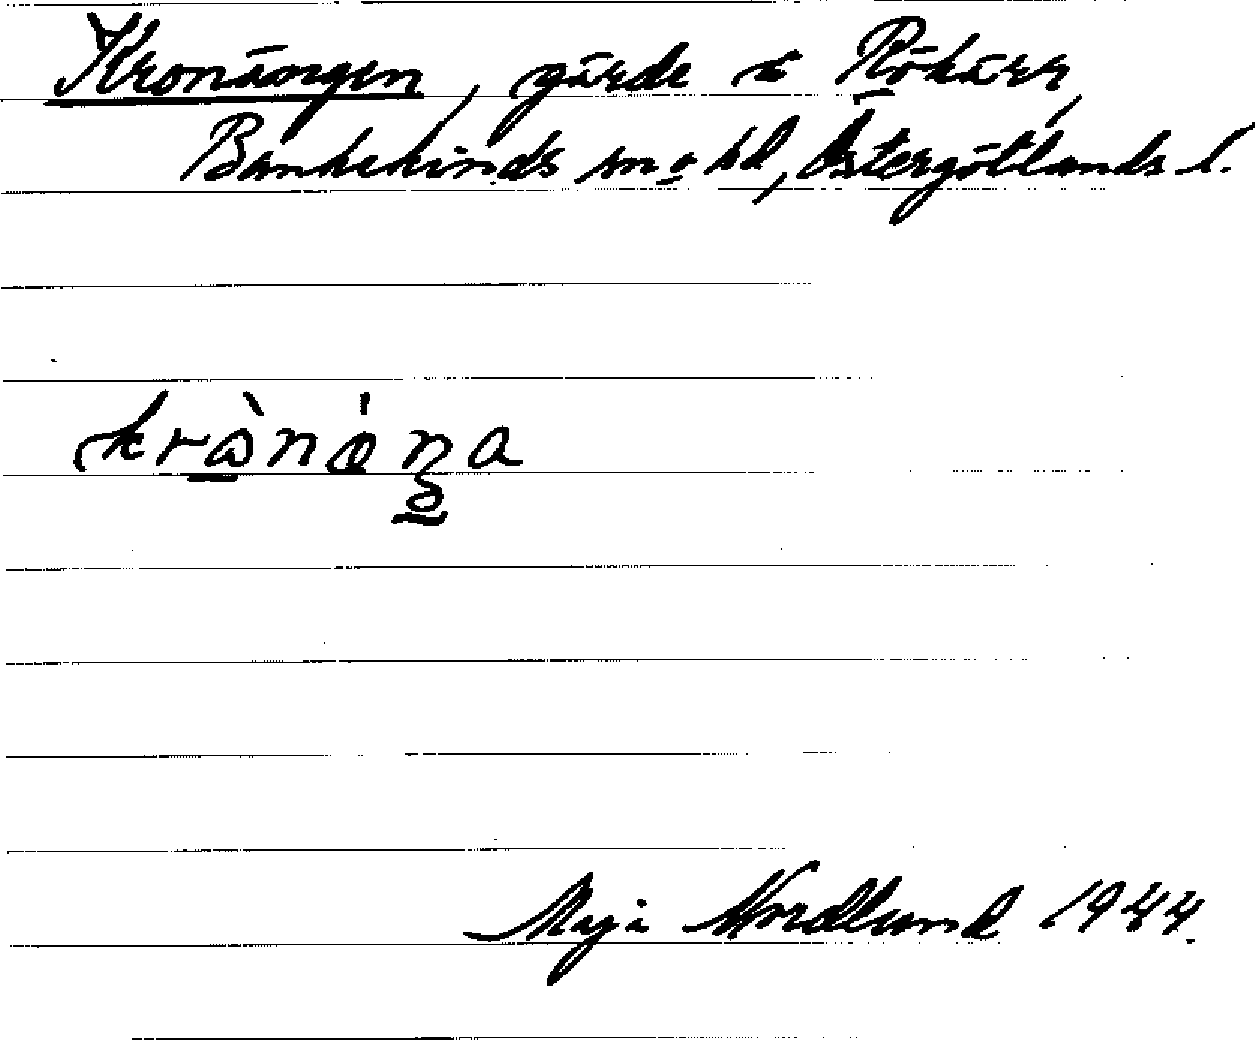 Kronängen, gärde i Rökärr,
Bankekinds sn o hd, Östergötlands l.
krànǿŋa
Maja Nordlund 1944.